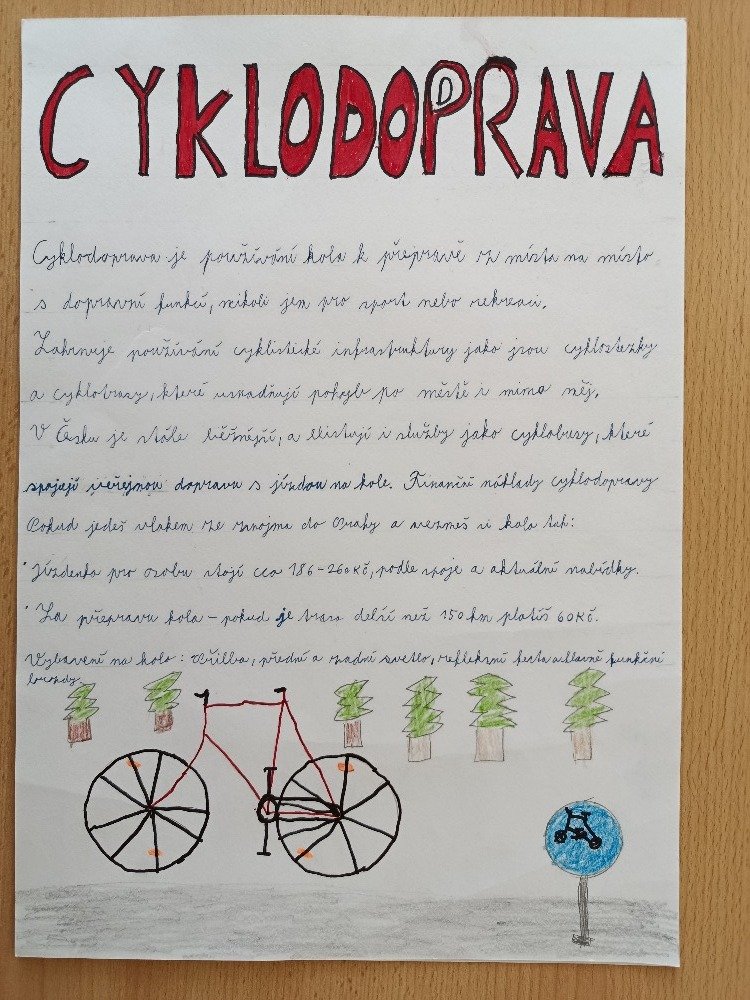 CYKLODOPRAVA
Cyklodoprava je používání kola k přepravě z místa na místo
s dopravní funkcí, nikoli jen pro sport nebo rekreaci.
Zahrnuje používání cyklistické infrastruktury jako jsou cyklostezky
a cyklotrasy, které usnadňují pohyb po městě i mimo něj.
V Česku je stále běžnější, a existují i služby jako cyklobusy, které
spojují veřejnou dopravu s jízdou na kole. Finanční náklady cyklodopravy
Pokud jedeš vlakem ze Znojma do Prahy a vezmeš si kolo tak:
· Jízdenka pro osobu stojí cca 186-260Kč, podle spoje a aktuální nabídky.
· Za přepravu kola - pokud je trasa delší než 150km platíš 60Kč.
Vybavení na kolo: Přilba, přední a zadní světlo, reflexní vesta a hlavně funkční
brzdy.